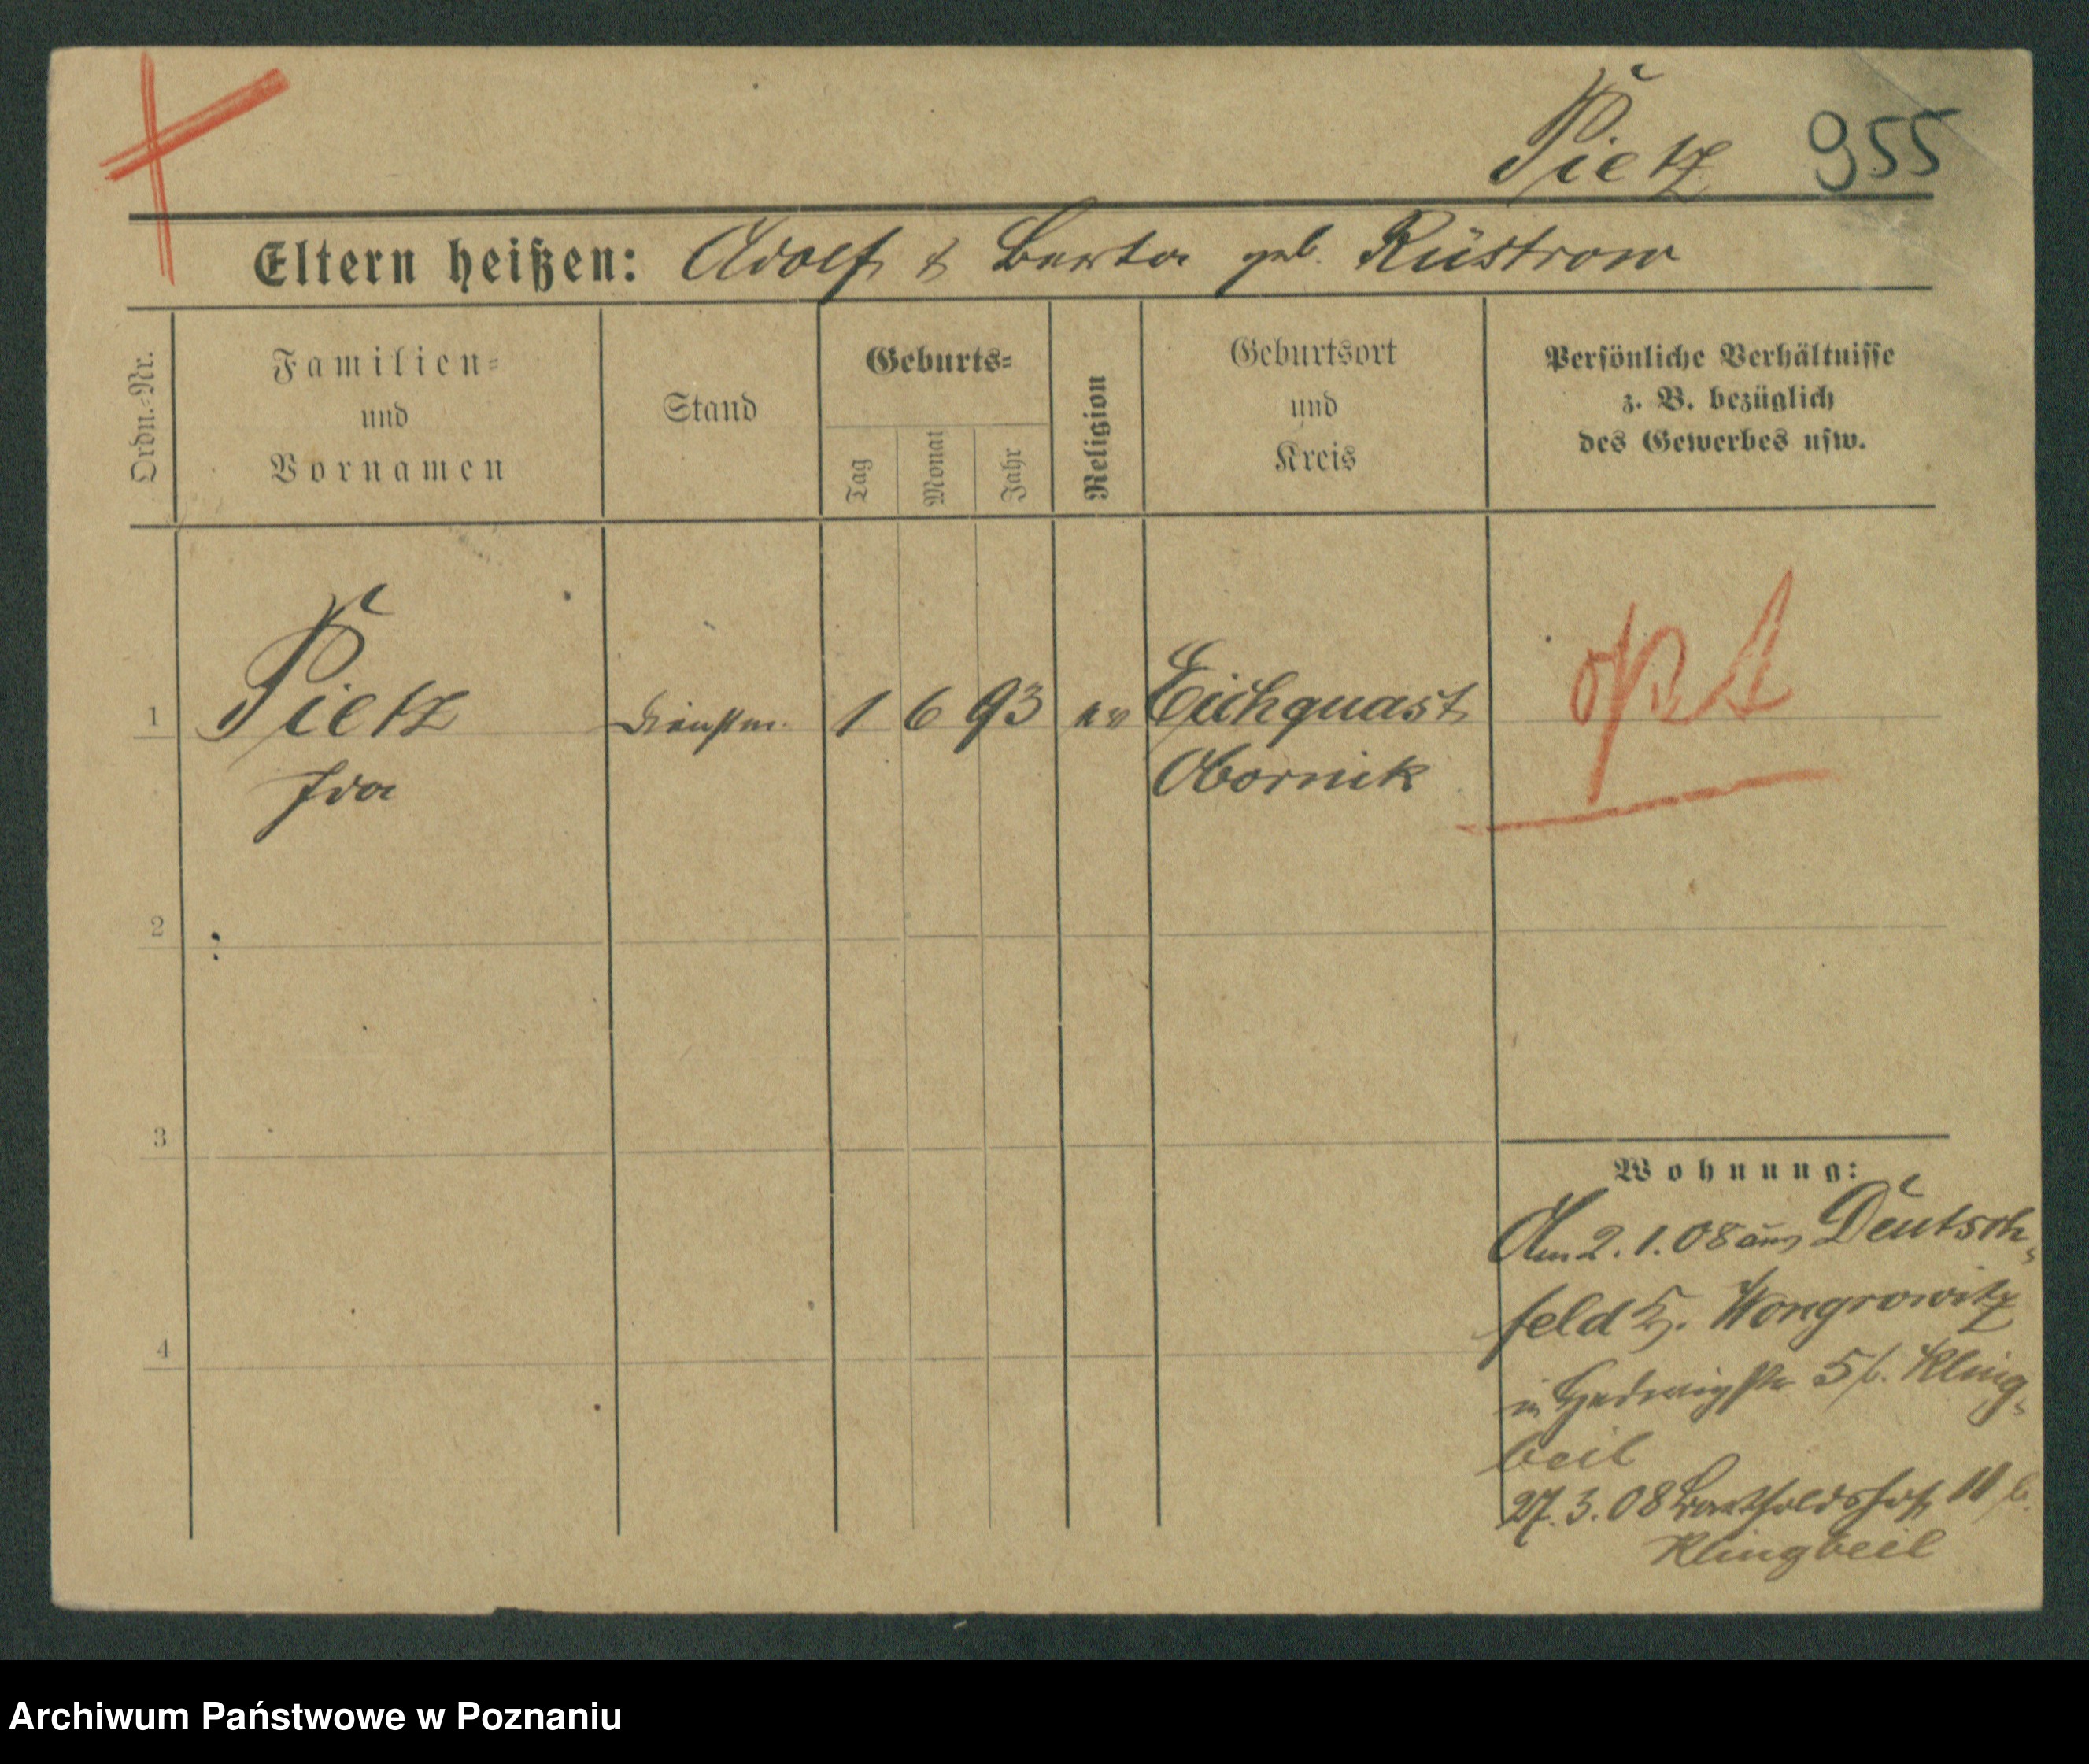 Pietz 955
Eltern heißen: Adolf & Berta geb. Rüstrow
Ordn.-Nr.
Familien-
und
Vornamen
Stand
Geburts-
Tag
Monat
Jahr
Religion
Geburtsort
und
Kreis
Persönliche Verhältnisse
z. B. bezüglich
des Gewerbes usw.
1 Pietz Dienstm. 1 6 93 ev Eichquast
Ida Obornik
2
3
4
Wohnung:
Am 2.1.08 aus Deutsch-
feld K. Wongrowitz
in Hedwigstr 5 b. Kling-
beil
27.3.08 11 b.
Klingbeil
Archiwum Państwowe w Poznaniu